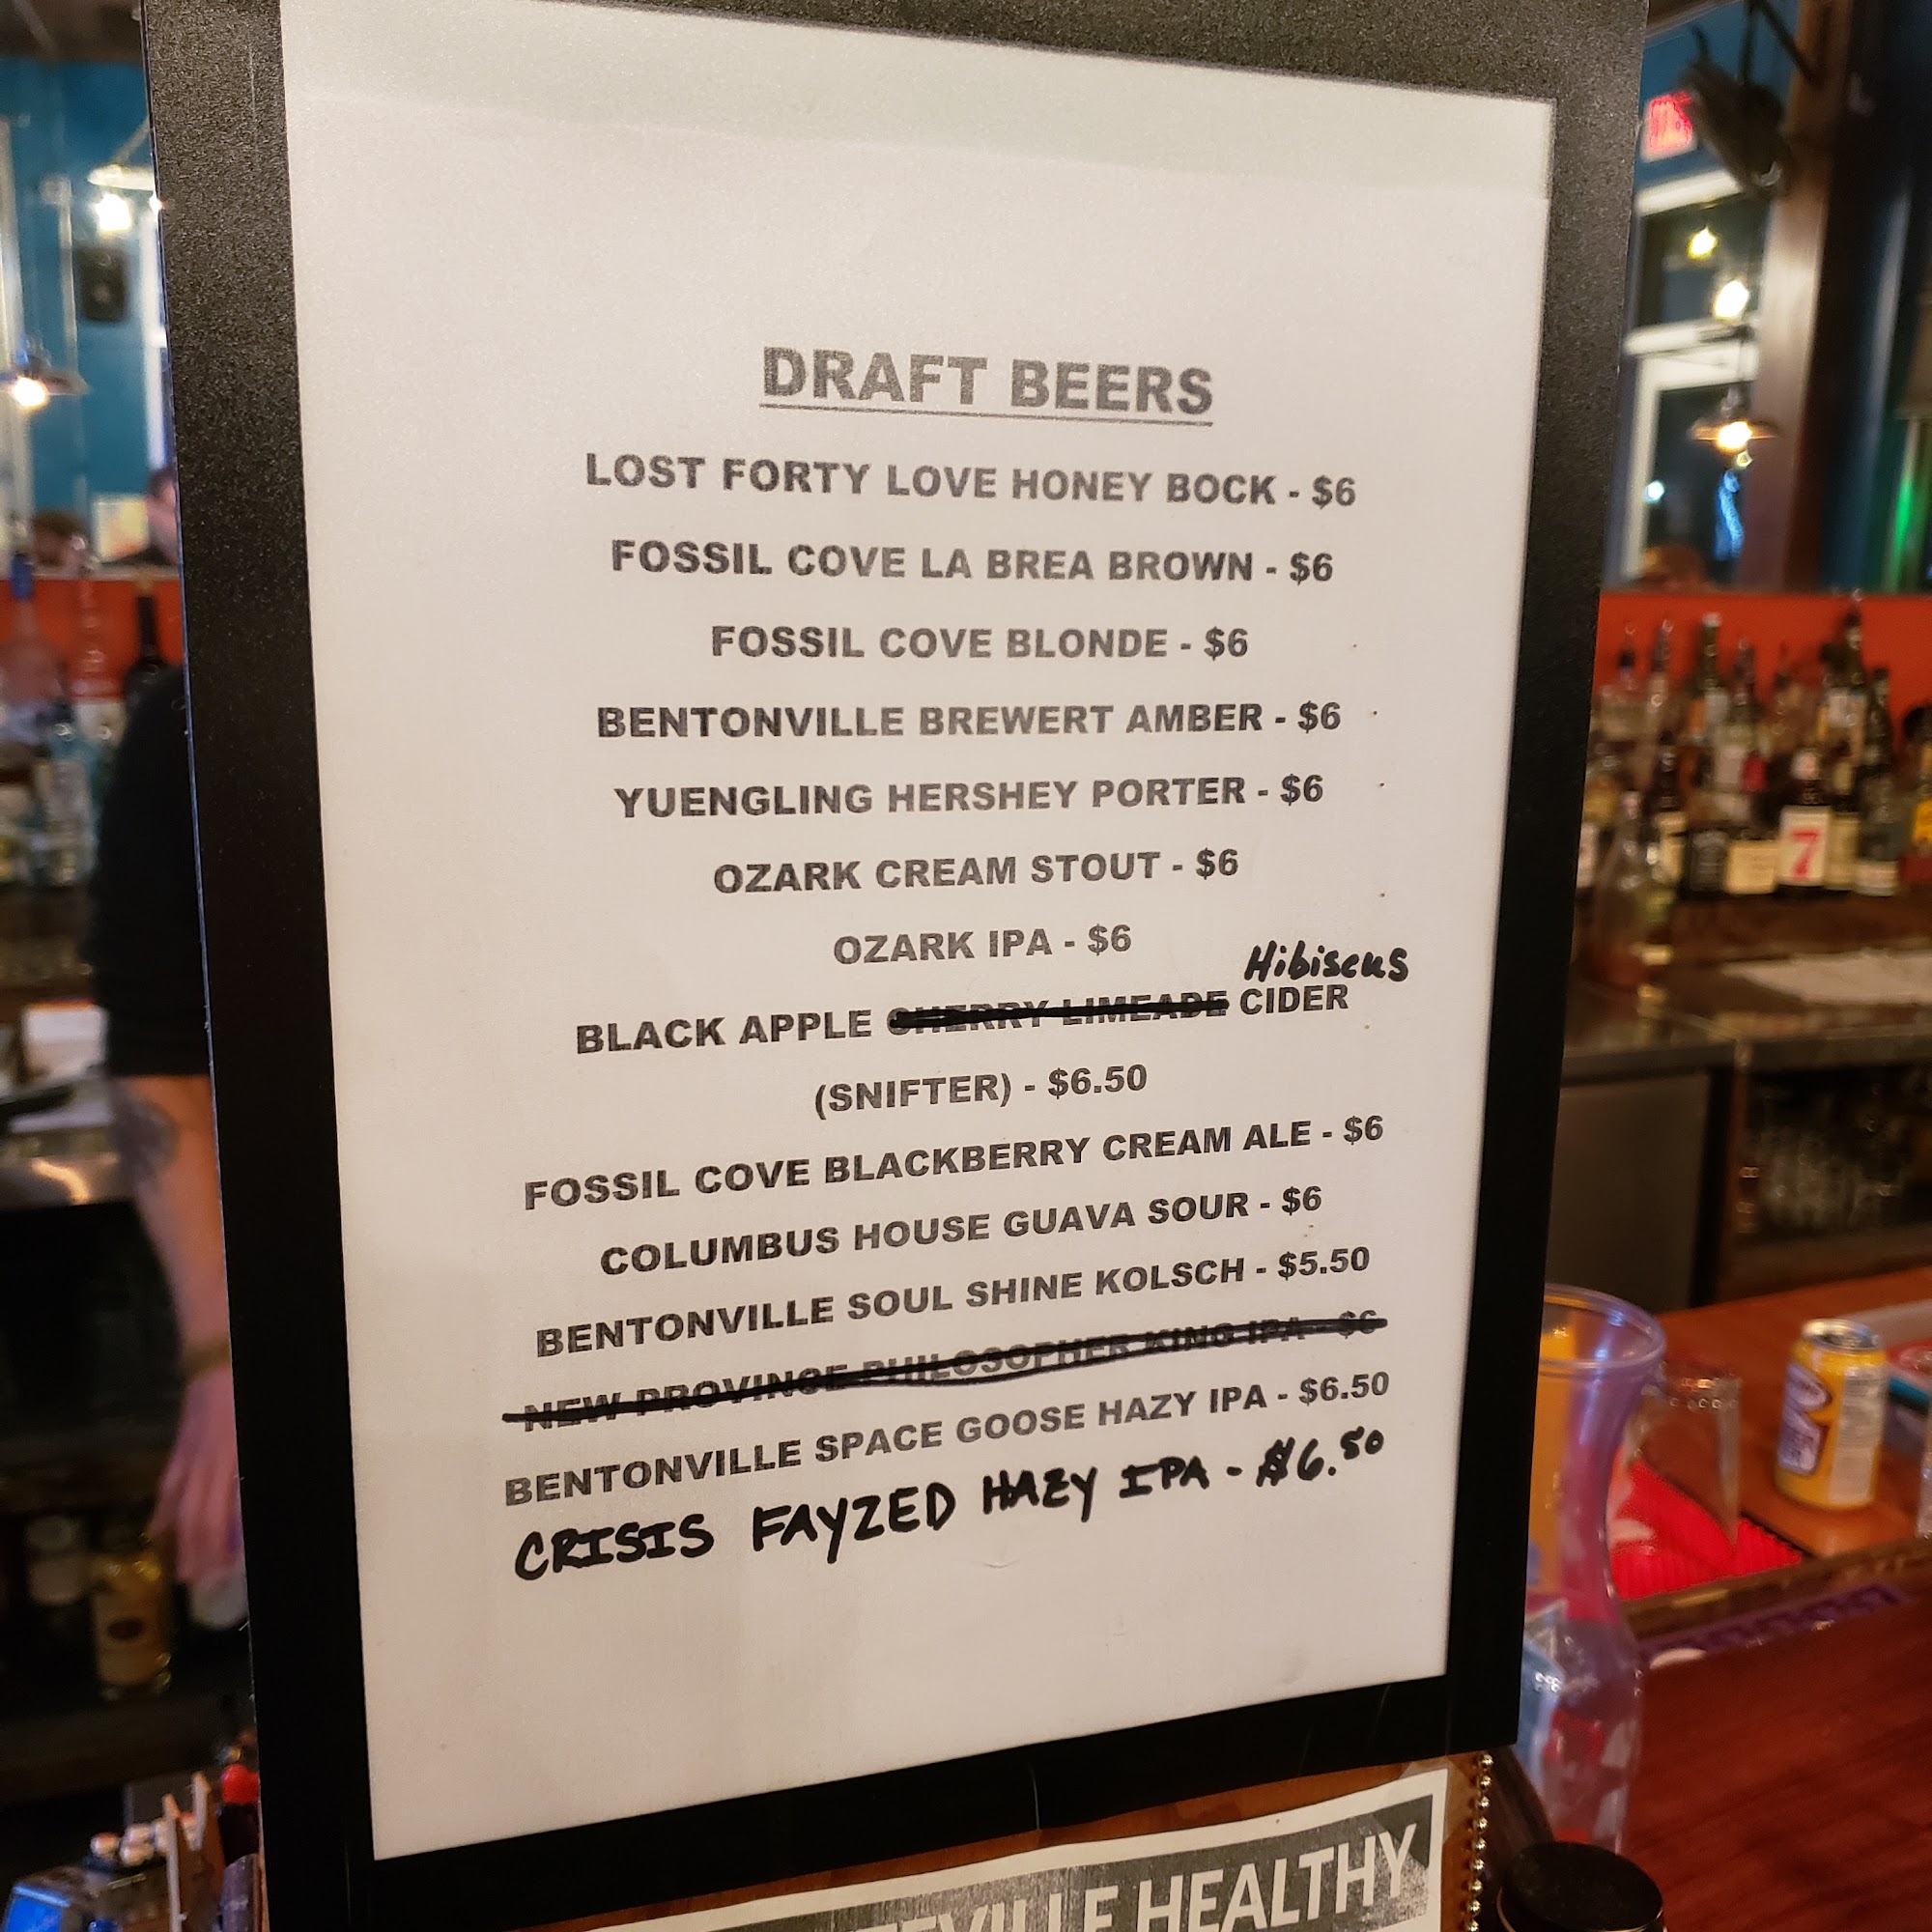 DRAFT BEERS
LOST FORTY LOVE HONEY BOCK - $6
FOSSIL COVE LA BREA BROWN - $6
FOSSIL COVE BLONDE - $6
BENTONVILLE BREWERT AMBER - $6
YUENGLING HERSHEY PORTER - $6
OZARK CREAM STOUT - $6
OZARK IPA - $6
Hibiscus
BLACK APPLE CHERRY LIMEADE CIDER
(SNIFTER) - $6.50
FOSSIL COVE BLACKBERRY CREAM ALE - $6
COLUMBUS HOUSE GUAVA SOUR - $6
BENTONVILLE SOUL SHINE KOLSCH - $5.50
NEW PROVINCE PHILOSOPHER KING IPA - $6
BENTONVILLE SPACE GOOSE HAZY IPA - $6.50
CRISIS FAYZED HAZY IPA - $6.50
HEALTHY
7